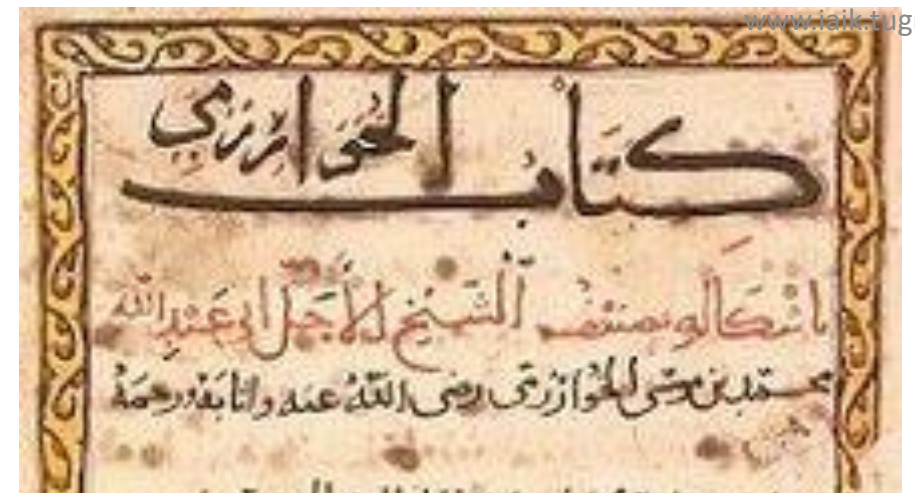 www.iaik.tug
كتاب الخوارزمي
باشكاله تصنيف الشيخ الأجل ابي عبد الله
محمد بن موسى الخوارزمي رضي الله عنه واثابه ورحمة